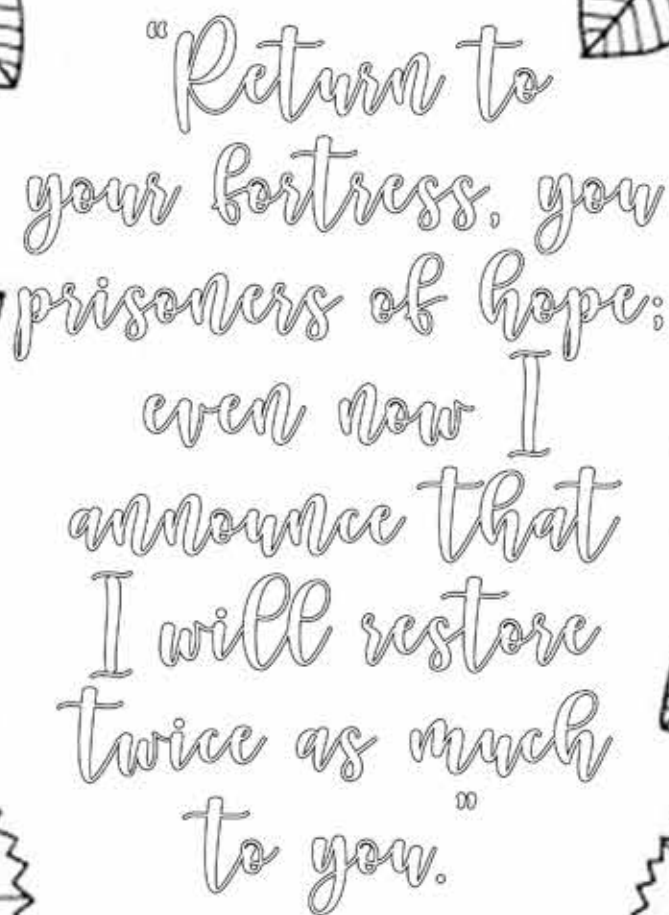 “Return to
your fortress, you
prisoners of hope;
even now I
announce that
I will restore
twice as much
to you.”